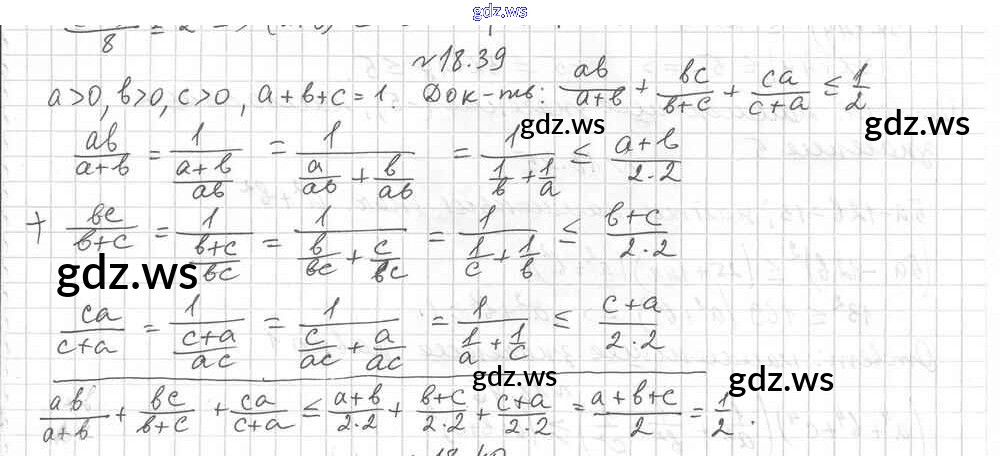 gdz.ws
8
№18.39
a>0, b>0, c>0, a+b+c=1. Док-ть: ab/(a+b) + bc/(b+c) + ca/(c+a) ≤ 1/2
gdz.ws gdz.ws
ab/(a+b) = 1/((a+b)/ab) = 1/(a/ab + b/ab) = 1/(1/b + 1/a) ≤ (a+b)/(2·2)
+ bc/(b+c) = 1/((b+c)/bc) = 1/(b/bc + c/bc) = 1/(1/c + 1/b) ≤ (b+c)/(2·2)
gdz.ws gdz.ws
ca/(c+a) = 1/((c+a)/ac) = 1/(c/ac + a/ac) = 1/(1/a + 1/c) ≤ (c+a)/(2·2)
gdz.ws gdz.ws
ab/(a+b) + bc/(b+c) + ca/(c+a) ≤ (a+b)/(2·2) + (b+c)/(2·2) + (c+a)/(2·2) = (a+b+c)/2 = 1/2.